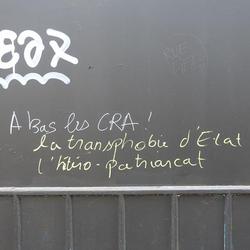 A Bas les CRA !
la transphobie d'Etat
l'hétéro-patriarcat